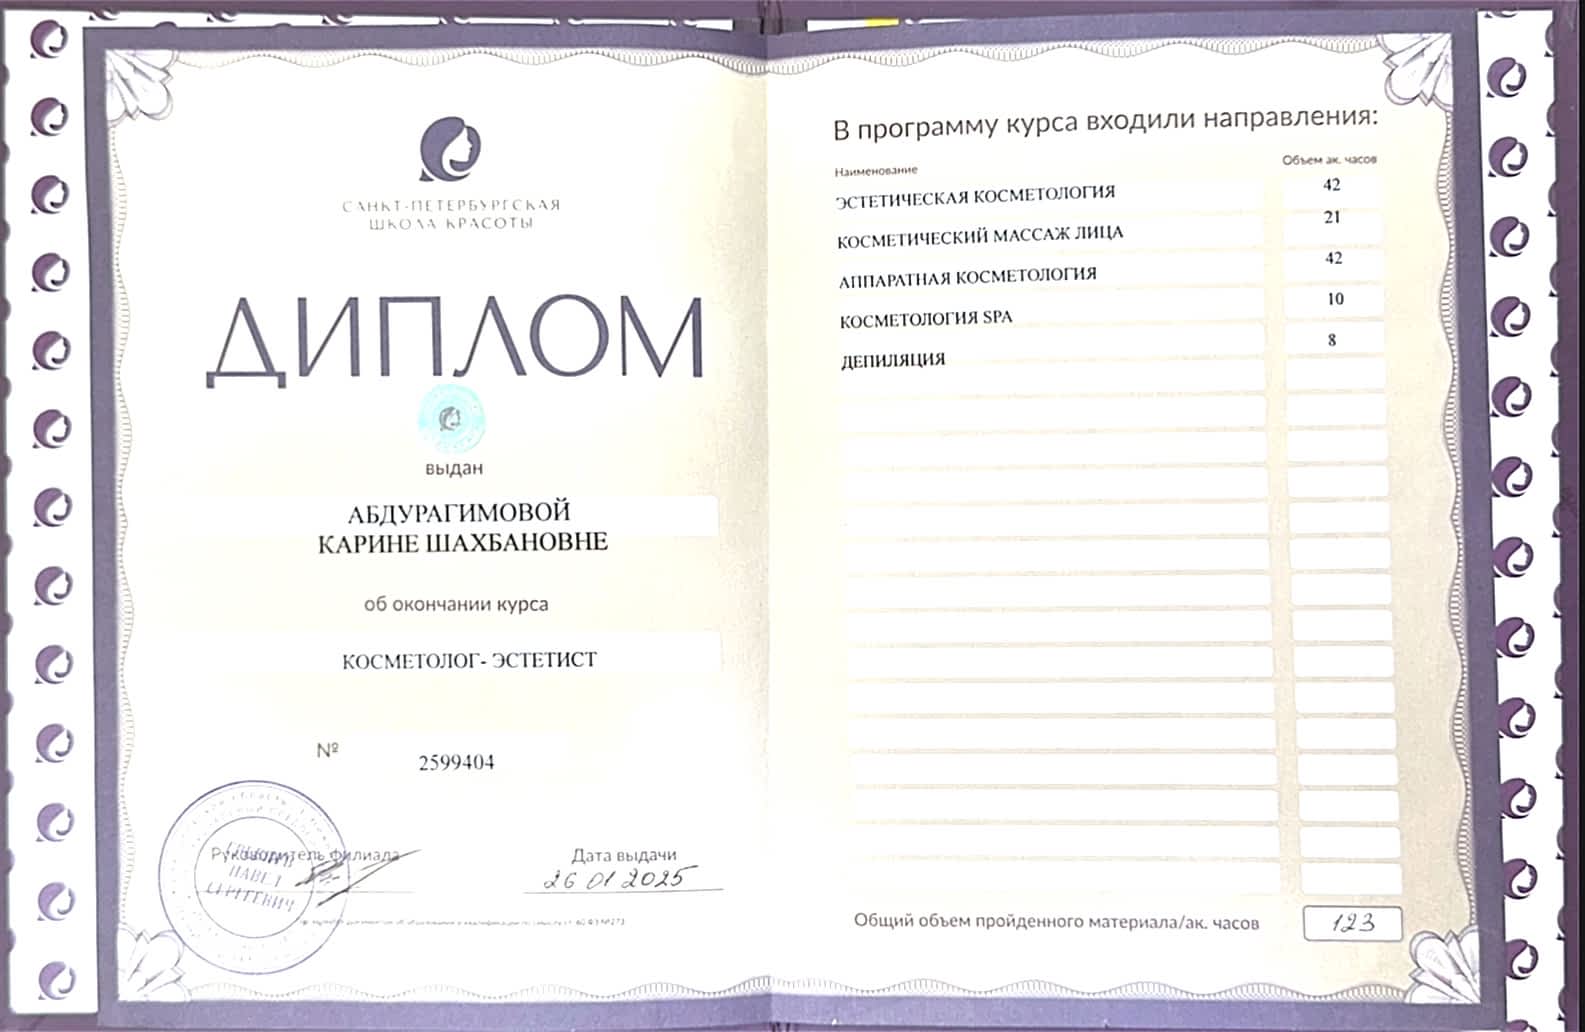 САНКТ-ПЕТЕРБУРГСКАЯ
ШКОЛА КРАСОТЫ
ДИПЛОМ
выдан
АБДУРАГИМОВОЙ
КАРИНЕ ШАХБАНОВНЕ
об окончании курса
КОСМЕТОЛОГ- ЭСТЕТИСТ
№ 2599404
Руководитель филиала
ПАВЕЛ
СЕРГЕЕВИЧ
Дата выдачи
26 01 2025
В программу курса входили направления:
Наименование Объем ак. часов
ЭСТЕТИЧЕСКАЯ КОСМЕТОЛОГИЯ 42
КОСМЕТИЧЕСКИЙ МАССАЖ ЛИЦА 21
АППАРАТНАЯ КОСМЕТОЛОГИЯ 42
КОСМЕТОЛОГИЯ SPA 10
ДЕПИЛЯЦИЯ 8
Общий объем пройденного материала/ак. часов 123